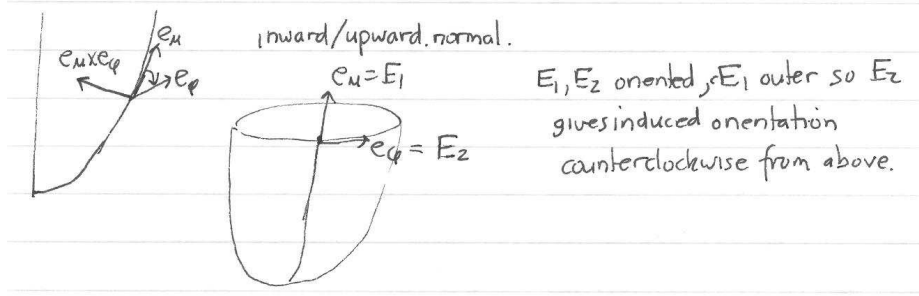 inward/upward.normal.
e_μ
e_μ×e_φ
e_φ
e_μ=E_1
e_φ = E_2
E_1, E_2 oriented, E_1 outer so E_2
gives induced orientation
counterclockwise from above.